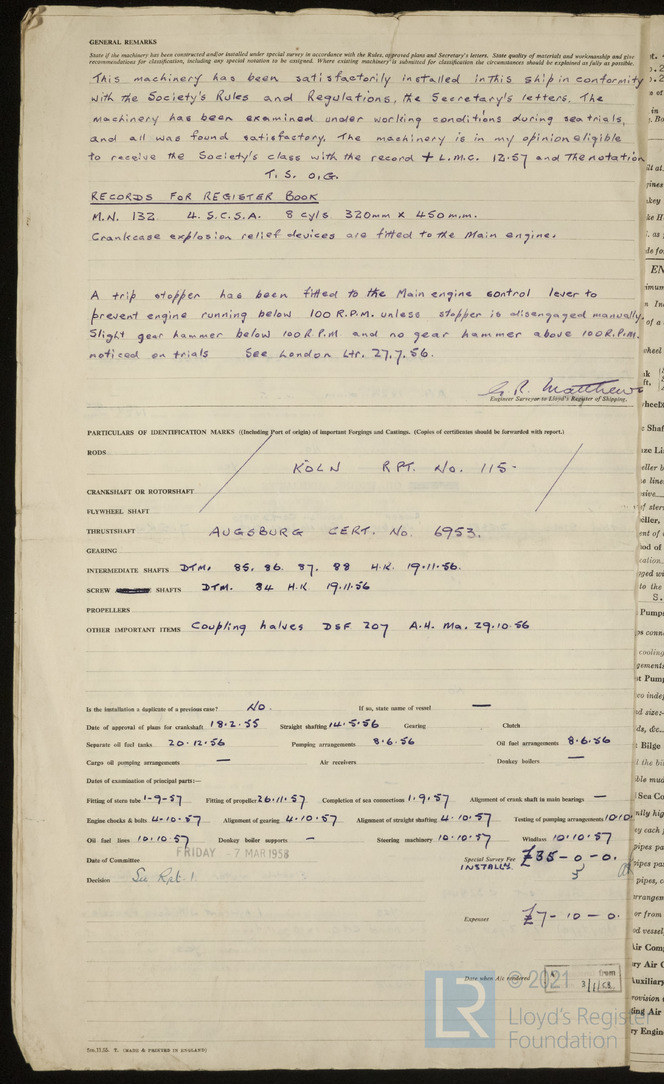 GENERAL REMARKS
State if the machinery has been constructed and/or installed under special survey in accordance with the Rules, approved plans and Secretary's letters. State quality of materials and workmanship and give
recommendations for classification, including any special notation to be assigned. Where existing machinery is submitted for classification the circumstances should be explained as fully as possible.
This machinery has been satisfactorily installed in this ship in conformity
with the Society's Rules and Regulations, the Secretary's letters. The
machinery has been examined under working conditions during sea trials,
and all was found satisfactory. The machinery is in my opinion eligible
to receive the Society's class with the record + L.M.C. 12.57 and the notation
T.S. O.G.
RECORDS FOR REGISTER BOOK
M.N. 132 4.S.C.S.A. 8 cyls 320mm x 450 m.m.
Crankcase explosion relief devices are fitted to the Main engine.
A trip stopper has been fitted to the Main engine control lever to
prevent engine running below 100 R.P.M. unless stopper is disengaged manually.
Slight gear hammer below 100 R.P.M and no gear hammer above 100 R.P.M.
noticed on trials See London Ltr. 27.7.56.
G.R. Matthews
Engineer Surveyor to Lloyd's Register of Shipping.
PARTICULARS OF IDENTIFICATION MARKS ((Including Port of origin) of important Forgings and Castings. (Copies of certificates should be forwarded with report.)
RODS
KÖLN RPT. No. 115-
CRANKSHAFT OR ROTORSHAFT
FLYWHEEL SHAFT
THRUSTSHAFT AUGSBURG CERT. No. 6953.
GEARING
INTERMEDIATE SHAFTS DTM. 85. 86. 87. 88 H.K. 19.11.56.
SCREW SHAFTS DTM. 84 H.K 19.11.56
PROPELLERS
OTHER IMPORTANT ITEMS Coupling halves DSF 207 A.H. Ma. 29.10.56
Is the installation a duplicate of a previous case? No. If so, state name of vessel —
Date of approval of plans for crankshaft 18.2.55 Straight shafting 14.5.56 Gearing Clutch
Separate oil fuel tanks 20.12.56 Pumping arrangements 8.6.56 Oil fuel arrangements 8.6.56
Cargo oil pumping arrangements — Air receivers Donkey boilers —
Dates of examination of principal parts:—
Fitting of stern tube 1-9-57 Fitting of propeller 26.11.57 Completion of sea connections 1.9.57 Alignment of crank shaft in main bearings —
Engine chocks & bolts 4.10.57 Alignment of gearing 4.10.57 Alignment of straight shafting 4.10.57 Testing of pumping arrangements 10/10
Oil fuel lines 10.10.57 Donkey boiler supports — Steering machinery 10.10.57 Windlass 10.10.57
FRIDAY - 7 MAR 1958
Date of Committee Special Survey Fee £35-0-0.
INSTALLN.
Decision See Rpt. 1
Expenses £7-10-0.
Date when A/c rendered from
3/1/58
© 2021
LR Lloyd's Register
Foundation
T. (MADE & PRINTED IN ENGLAND)